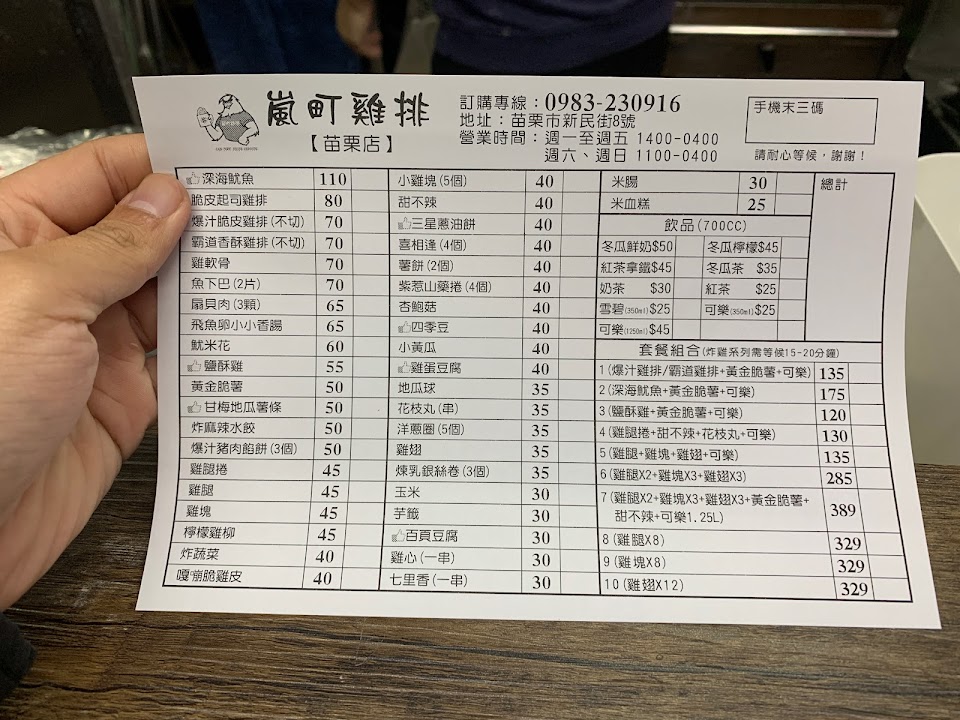 嵐町雞排
【苗栗店】
訂購專線：0983-230916
地址：苗栗市新民街8號
營業時間：週一至週五 1400-0400
週六、週日 1100-0400
手機末三碼
請耐心等候，謝謝！
深海魷魚 110
脆皮起司雞排 80
爆汁脆皮雞排(不切) 70
霸道香酥雞排(不切) 70
雞軟骨 70
魚下巴(2片) 70
扇貝肉(3顆) 65
飛魚卵小小香腸 65
魷米花 60
鹽酥雞 55
黃金脆薯 50
甘梅地瓜薯條 50
炸麻辣水餃 50
爆汁豬肉餡餅(3個) 50
雞腿捲 45
雞腿 45
雞塊 45
檸檬雞柳 45
炸蔬菜 40
嘎嘣脆雞皮 40
小雞塊(5個) 40
甜不辣 40
三星蔥油餅 40
喜相逢(4個) 40
薯餅(2個) 40
紫惹山藥捲(4個) 40
杏鮑菇 40
四季豆 40
小黃瓜 40
雞蛋豆腐 40
地瓜球 35
花枝丸(串) 35
洋蔥圈(5個) 35
雞翅 35
煉乳銀絲卷(3個) 35
玉米 30
芋籤 30
百頁豆腐 30
雞心(一串) 30
七里香(一串) 30
米腸 30
米血糕 25
飲品(700CC)
冬瓜鮮奶$50 冬瓜檸檬$45
紅茶拿鐵$45 冬瓜茶 $35
奶茶 $30 紅茶 $25
雪碧(350ml)$25 可樂(350ml)$25
可樂(1250ml)$45
總計
套餐組合(炸雞系列需等候15-20分鐘)
1(爆汁雞排/霸道雞排+黃金脆薯+可樂) 135
2(深海魷魚+黃金脆薯+可樂) 175
3(鹽酥雞+黃金脆薯+可樂) 120
4(雞腿捲+甜不辣+花枝丸+可樂) 130
5(雞腿+雞塊+雞翅+可樂) 135
6(雞腿X2+雞塊X3+雞翅X3) 285
7(雞腿X2+雞塊X3+雞翅X3+黃金脆薯+
甜不辣+可樂1.25L) 389
8(雞腿X8) 329
9(雞塊X8) 329
10(雞翅X12) 329